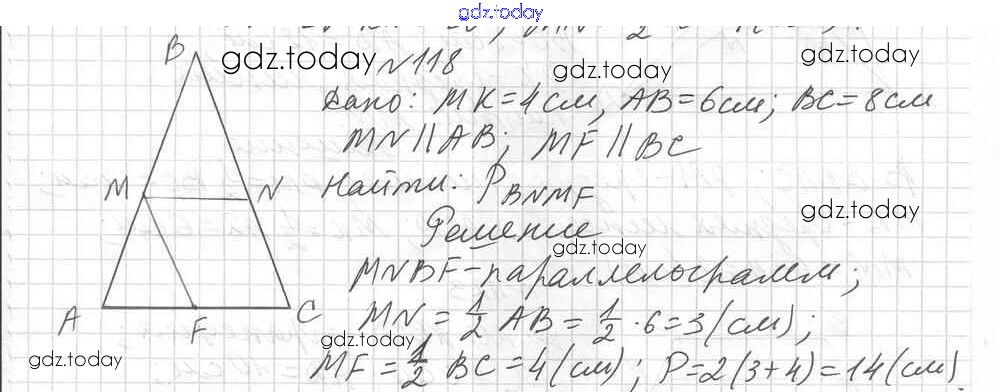 gdz.today
B
gdz.today
№118
gdz.today
Дано: MK=4см, AB=6см; BC=8см
MN||AB; MF||BC
gdz.today
M
N
Найти: P BNMF
gdz.today
Решение
gdz.today
MNBF-параллелограмм;
A
F
C
MN = 1/2 AB = 1/2 · 6 = 3 (см);
gdz.today
gdz.today
MF = 1/2 BC = 4 (см); P = 2(3+4) = 14 (см).
gdz.today